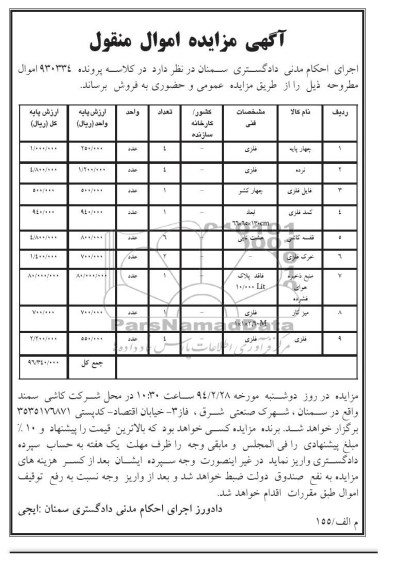 آگهی مزایده اموال منقول
اجرای احکام مدنی دادگستری سمنان در نظر دارد در کلاسه پرونده ۹۳۰۳۳۴ اموال
مطروحه ذیل را از طریق مزایده عمومی و حضوری به فروش برساند.
ردیف نام کالا مشخصات فنی کشور/ کارخانه سازنده تعداد واحد ارزش پایه واحد (ریال) ارزش پایه کل (ریال)
۱ چهار پایه فلزی – ۴ عدد ۲۵۰/۰۰۰ ۱/۰۰۰/۰۰۰
۲ نرده فلزی – ۴ عدد ۱/۲۰۰/۰۰۰ ۴/۸۰۰/۰۰۰
۳ فایل فلزی چهار کشو – ۱ عدد ۵۰۰/۰۰۰ ۵۰۰/۰۰۰
۴ کمد فلزی ابعاد – ۱ عدد ۹۴۰/۰۰۰ ۹۴۰/۰۰۰
۵ قفسه کاشی – ۶ عدد ۸۰۰/۰۰۰ ۴/۸۰۰/۰۰۰
۶ خرک فلزی – – ۲ عدد ۷۰۰/۰۰۰ ۱/۴۰۰/۰۰۰
۷ منبع ذخیره هوای فشرده فاقد پلاک ۱۰/۰۰۰ Lit – ۱ عدد ۸۰/۰۰۰/۰۰۰ ۸۰/۰۰۰/۰۰۰
۸ میز کار فلزی – ۱ عدد ۷۰۰/۰۰۰ ۷۰۰/۰۰۰
۹ فلزی فلزی ۴ عدد ۵۵۰/۰۰۰ ۲/۲۰۰/۰۰۰
جمع کل ۹۶/۳۴۰/۰۰۰
ParsNamadData
مزایده در روز دوشنبه مورخه ۹۴/۲/۲۸ ساعت ۱۰:۳۰ در محل شرکت کاشی سمند
واقع در سمنان ، شهرک صنعتی شرق ، فاز۳- خیابان اقتصاد- کدپستی ۳۵۳۵۱۷۶۸۷۱
برگزار خواهد شد. برنده مزایده کسی خواهد بود که بالاترین قیمت را پیشنهاد و ۱۰ ٪
مبلغ پیشنهادی را فی المجلس و مابقی وجه را ظرف مهلت یک هفته به حساب سپرده
دادگستری واریز نماید در غیر اینصورت وجه سپرده ایشان بعد از کسر هزینه های
مزایده به نفع صندوق دولت ضبط خواهد شد و بعد از واریز وجه نسبت به رفع توقیف
اموال طبق مقررات اقدام خواهد شد.
دادورز اجرای احکام مدنی دادگستری سمنان :ایچی
م الف/۱۵۵